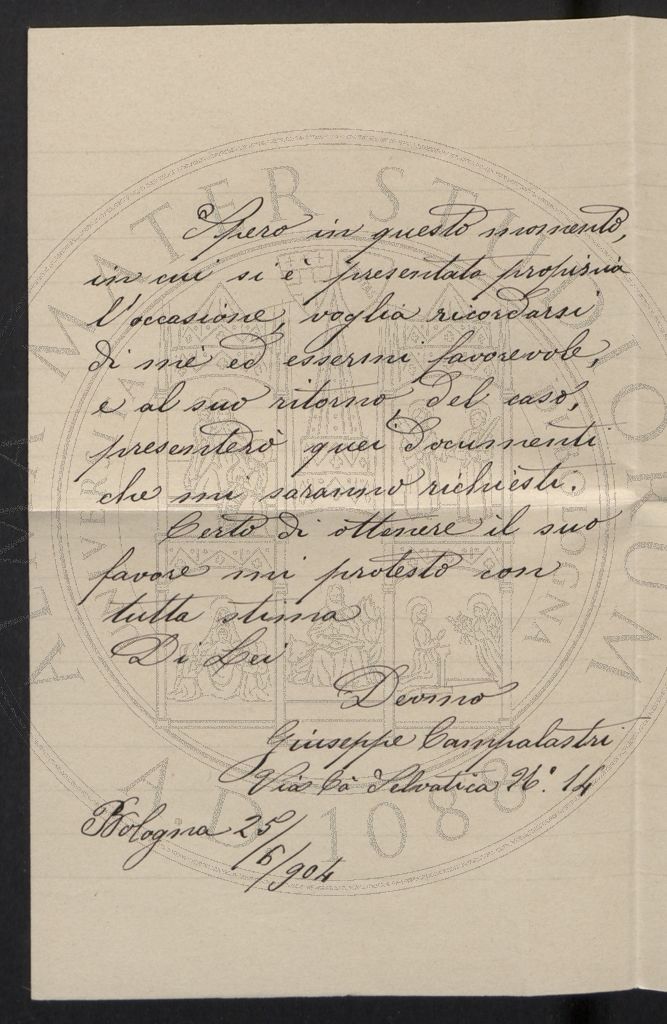 Spero in questo momento,
in cui si è presentata propizia
l'occasione, voglia ricordarsi
di me ed essermi favorevole,
e al suo ritorno, del caso,
presenterò quei documenti
che mi saranno richiesti.
Certo di ottenere il suo
favore mi protesto con
tutta stima
Di Lei
Devmo
Giuseppe Campalastri
Via Cà Selvatica N.º 14
Bologna 25/
/6/904
ALMA MATER STUDIORUM
A.D. 1088